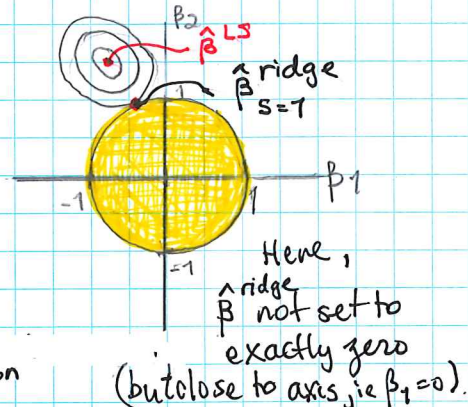 β2
β̂ LS
β̂ ridge
S=1
1
-1
1
β1
-1
Here,
β̂ ridge not set to
exactly zero
on
(but close to axis, ie β1=0).